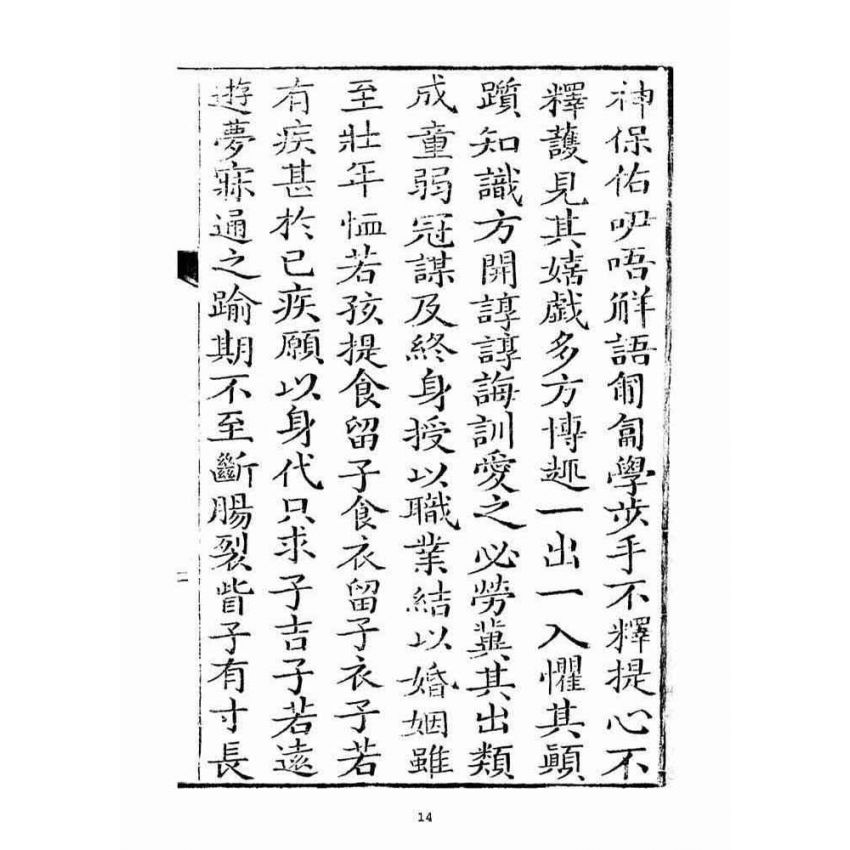 神保佑咿唔觧語匍匐學步手不釋提心不
釋護見其嬉戲多方慱趣一出一入懼其顚
躓知識方開諄諄誨訓愛之必勞兾其出類
成童弱冠謀及終身授以職業結以婚姻雖
至壯年恤若孩提食留子食衣留子衣子若
有疾甚於己疾願以身代只求子吉子若遠
遊夢寐通之踰期不至斷腸裂眥子有寸長
二
14